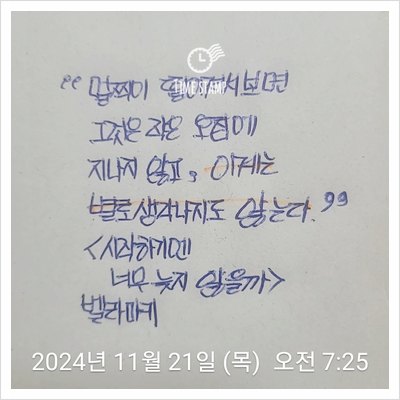 TIME STAMP
“멀찍이 떨어져서 보면
그것은 작은 오점에
지나지 않고, 이제는
별로 생각나지도 않는다.”
<시작하기엔
너무 늦지 않을까>
벨라마키
2024년 11월 21일 (목) 오전 7:25